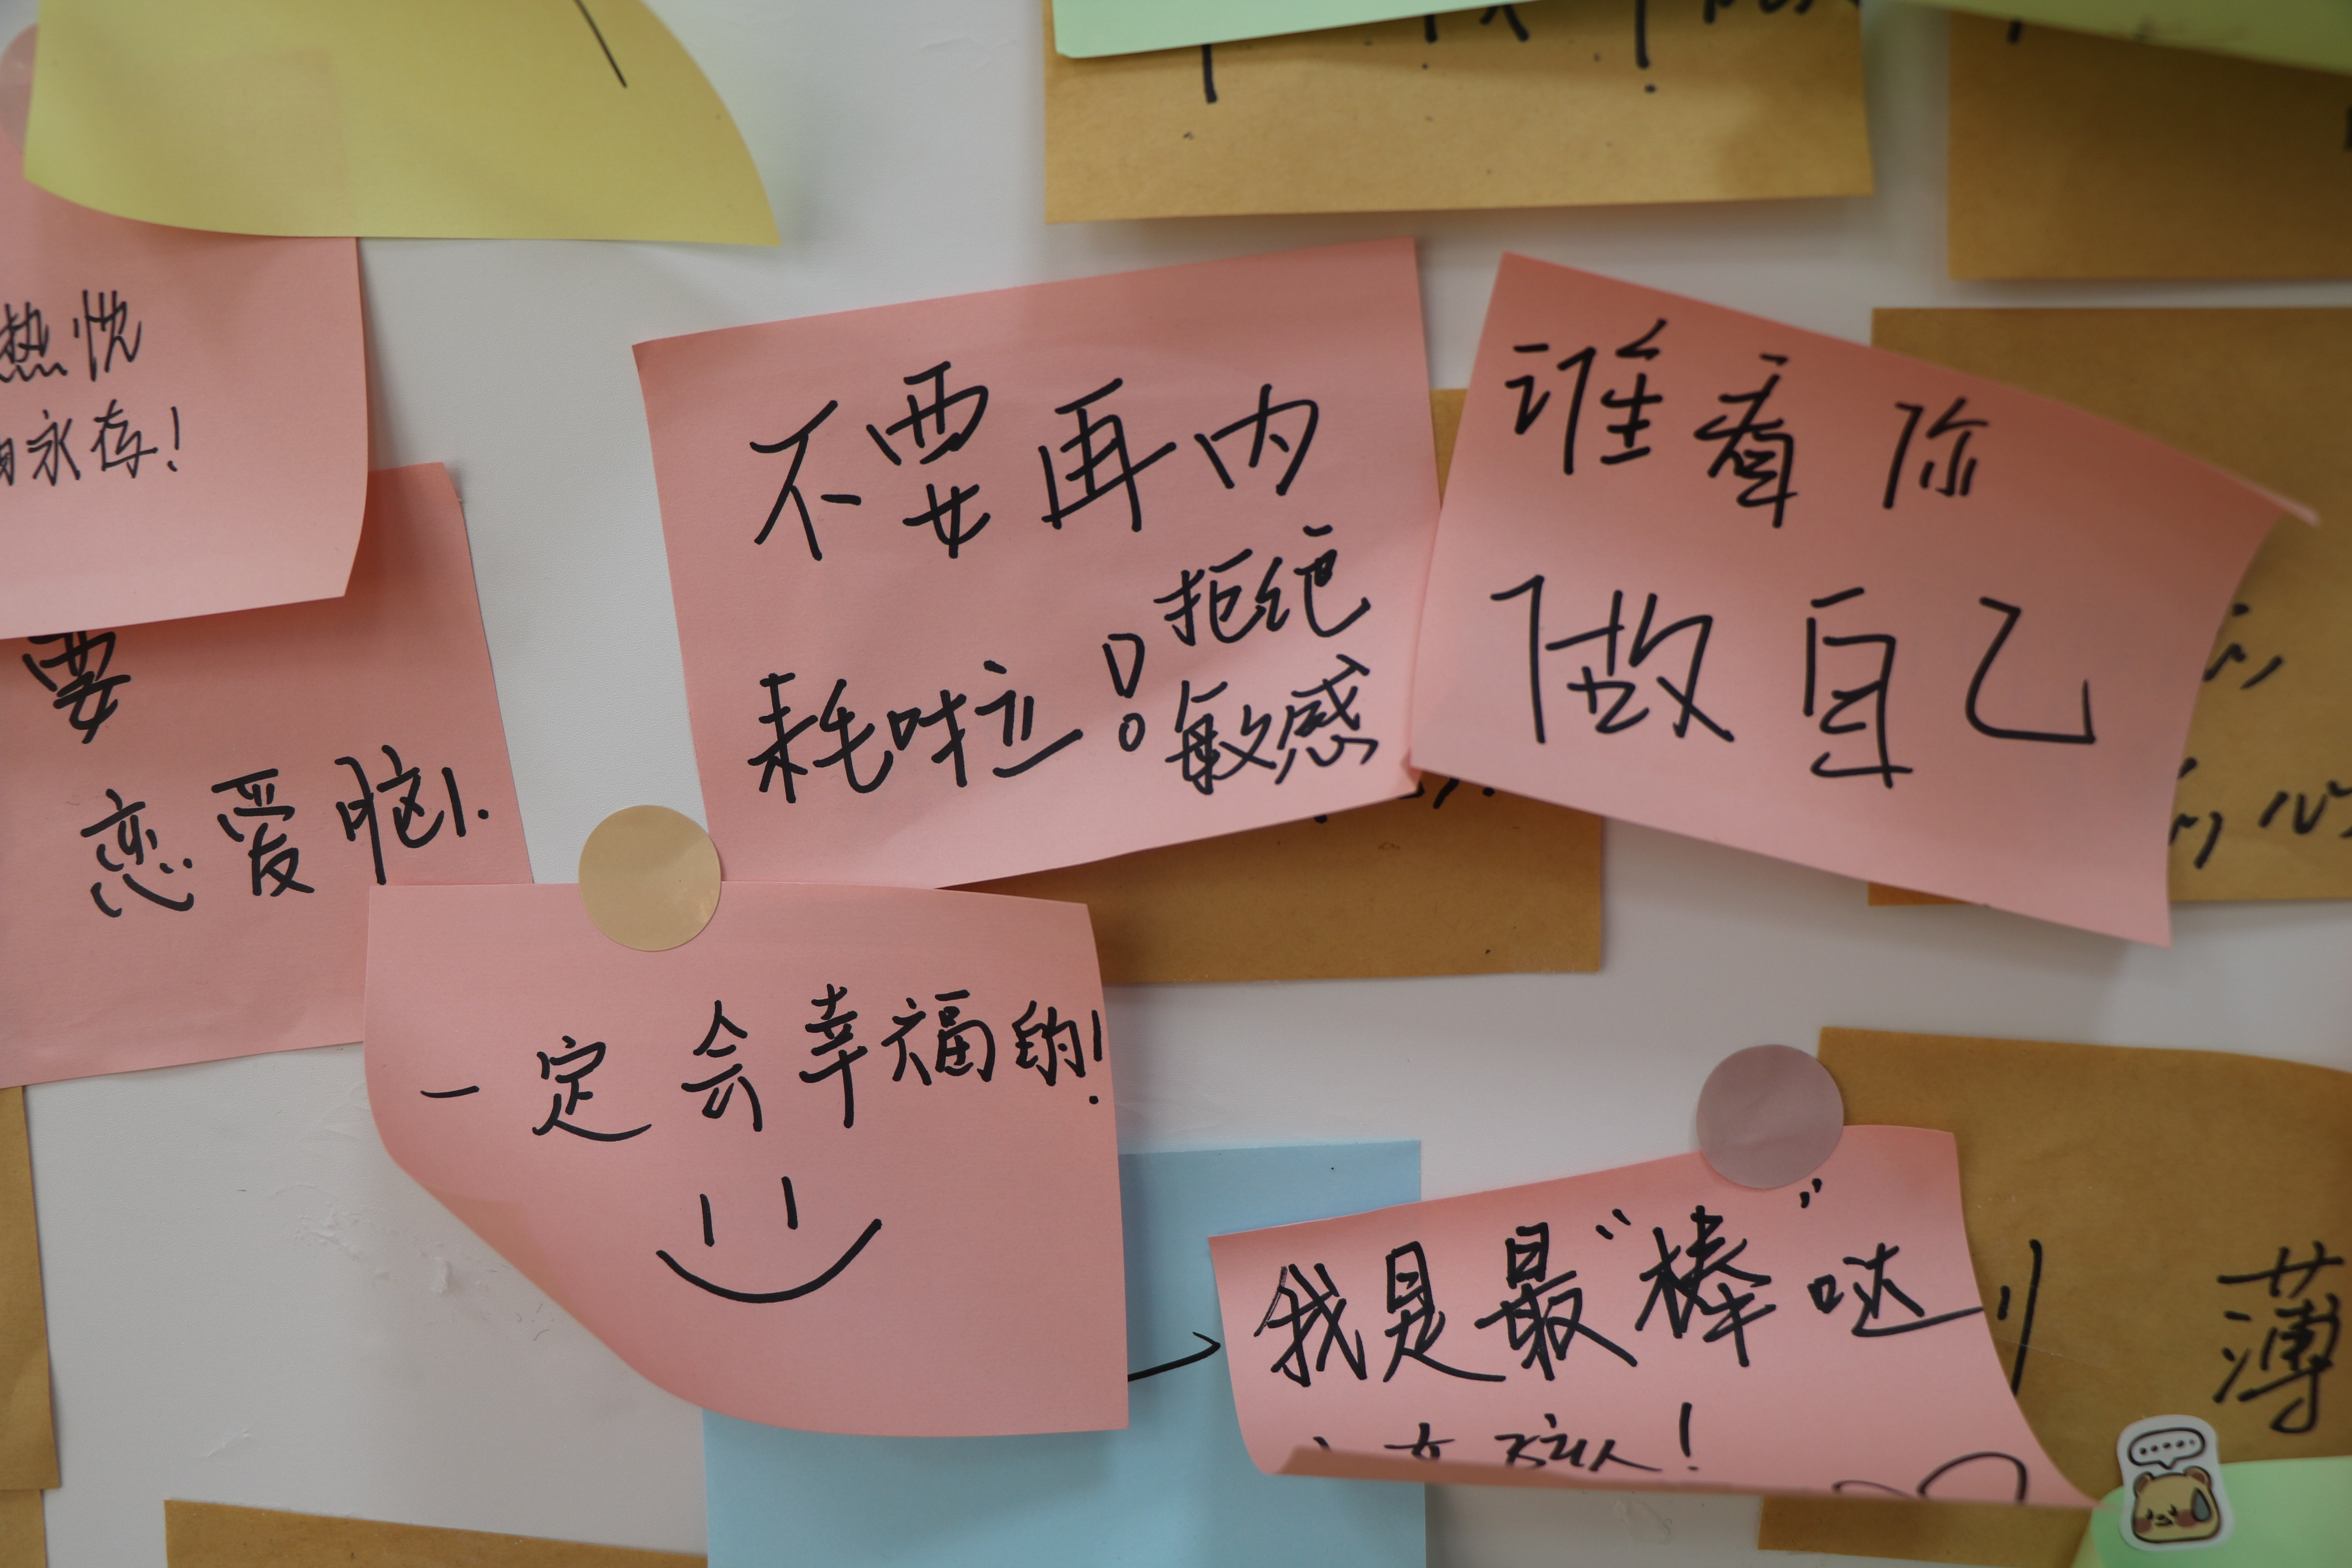 热忱
永存!
要
恋爱脑.
不要再内
耗啦!
拒绝
敏感
谁看你
做自己
一定会幸福的!
我是最“棒”哒
!
薄